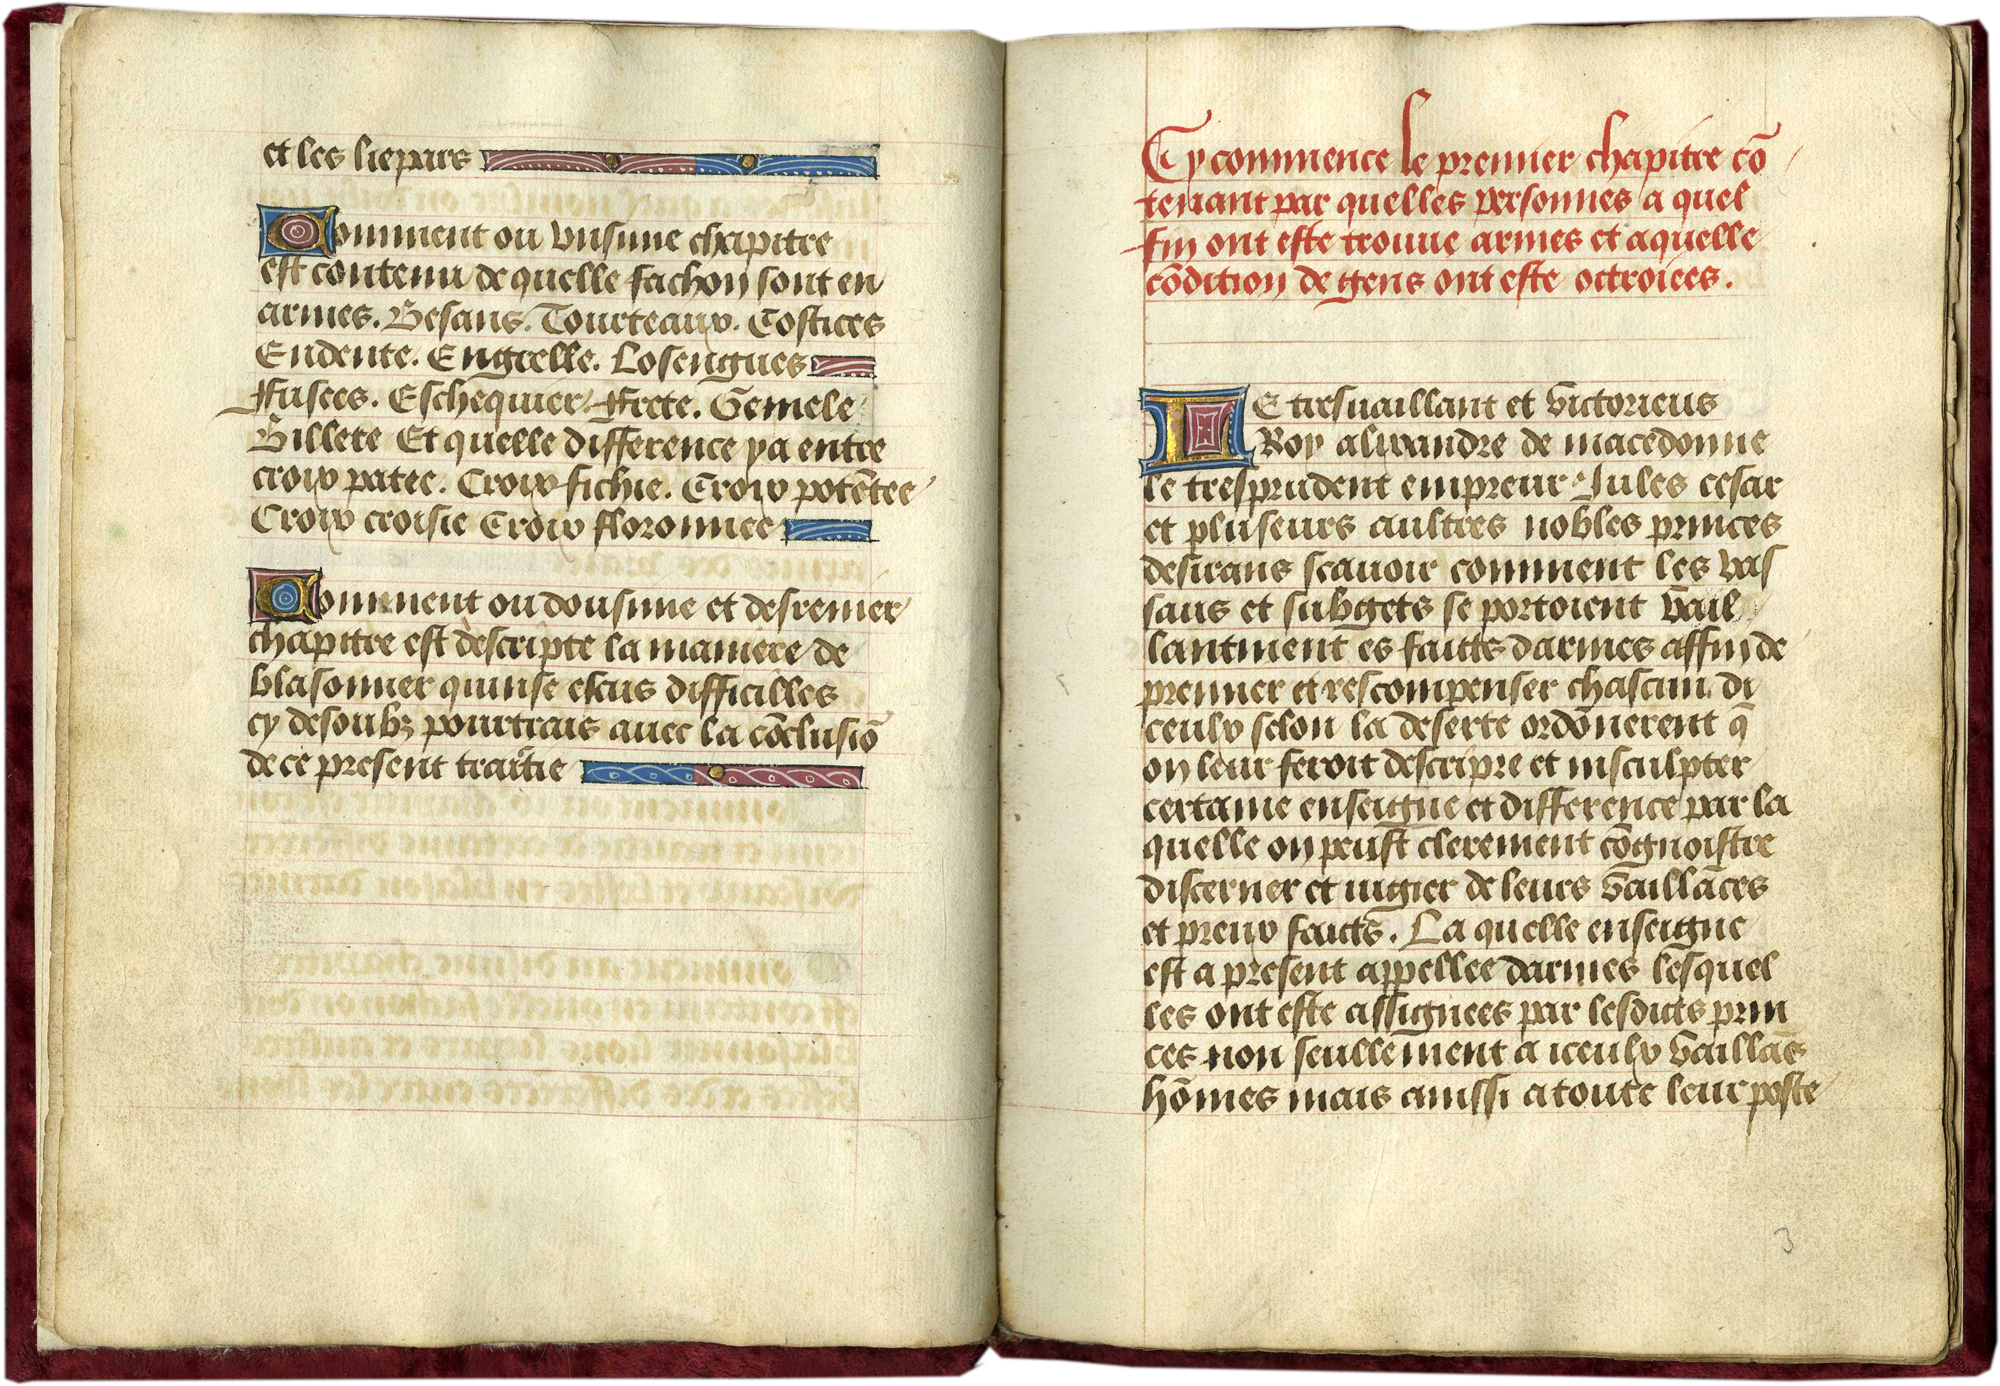 et les liepars
Comment ou unsime chapitre
est contenu de quelle fachon sont en
armes. Besans. Tourteaux. Costices
Endente. Engrelle. Losengues
Fusees. Eschequier. Frete. Gemele
Billete Et quelle difference ya entre
croix patee. Croix fichie. Croix potētee
Croix croisie Croix floronnee
Comment ou dousime et desrenier
chapitre est descripte la maniere de
blasonner quinse escus difficilles
cy desoubz pourtrais avec la cōclusiō
de ce present traictie
Cy commence le premier chapitre cō
tenant par quelles personnes a quel
fin ont este trouue armes et aquelle
cōdition de gens ont este octroiees.
LE tresuaillant et victorieus
Roy alixandre de macedonne
le tresprudent empreur Jules cesar
et pluseurs aultres nobles princes
desirans scauoir comment les vas
saus et subgets se portoient vail
lantment es faitts darmes affin de
premier et rescompenser chascun di
ceulx selon la deserte ordōnerent q̄
on leur feroit descripre et insculpter
certaine enseigne et difference par la
quelle on peust clerement cōgnoistre
discerner et iugier de leurs vaillāces
et preux faicts. La quelle enseigne
est a present appellee darmes lesquel
les ont este assignees par lesdicts prin
ces non seullement a iceulx vaillās
hōmes mais aussi a toute leur poste
3